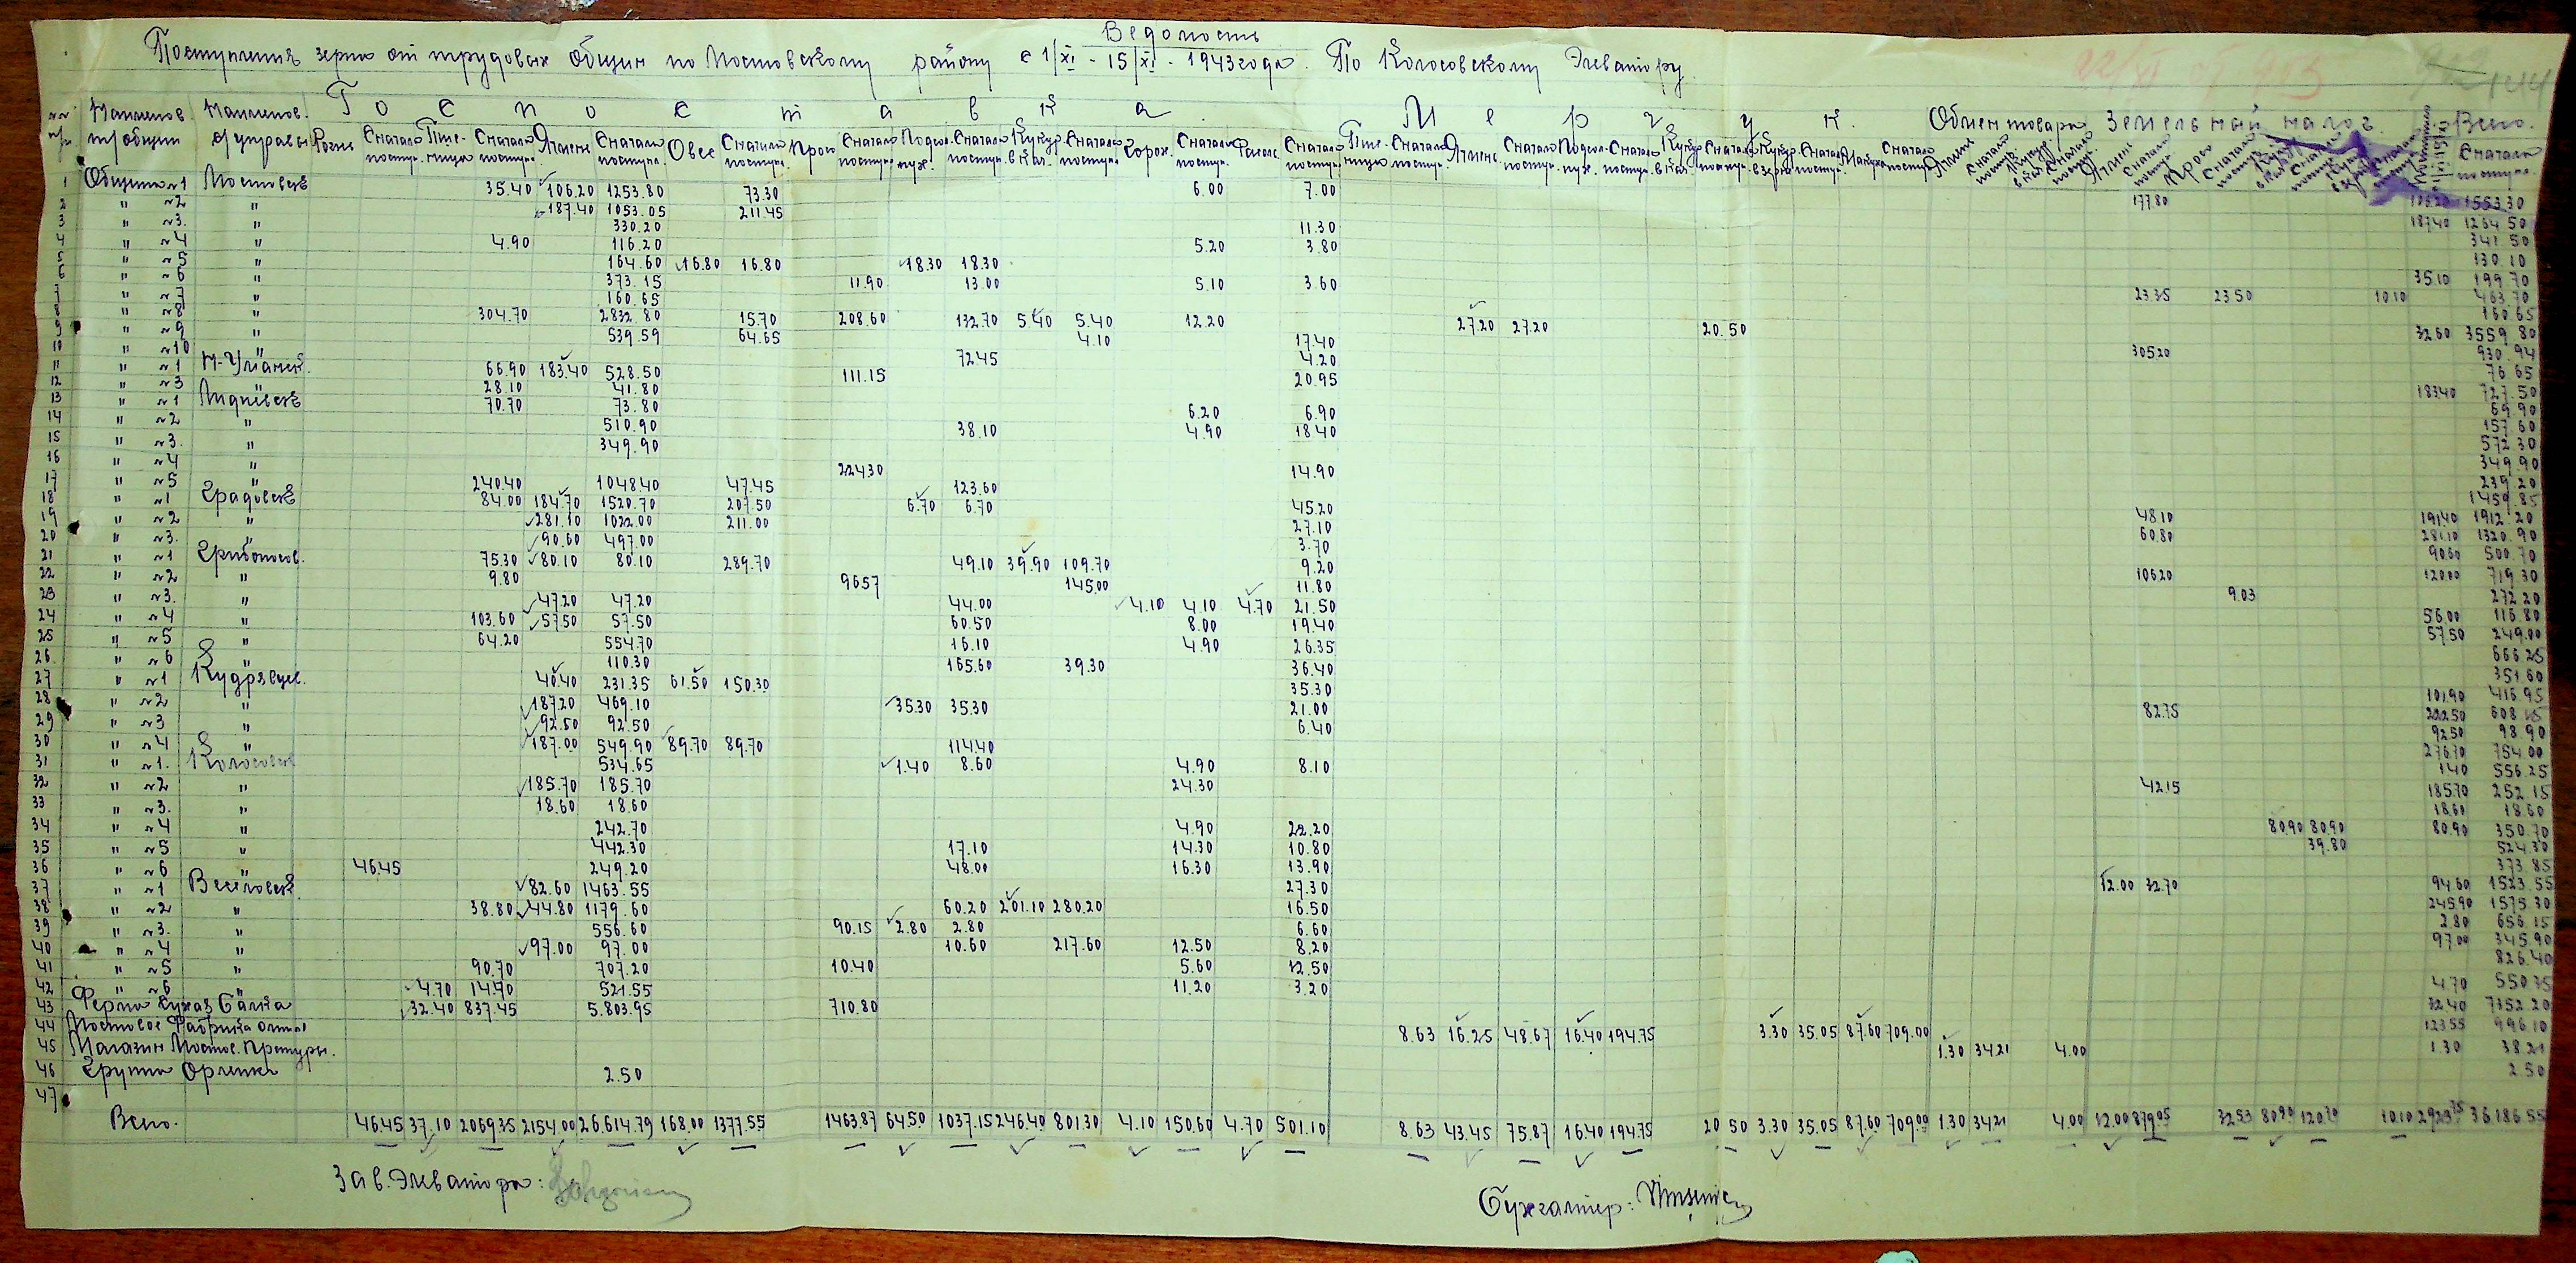 Ведомость
Поступления зерна от трудовых общин по Мостовскому району с 1/XI - 15/XI - 1943 года. По Колосовскому Элеватору.
903
144
Госпоставка Мерчук. Обмен товара Земельный налог. Всего.
Наименов. т/общин Наименов. с/управы Рожь Сначала поступ. Пше-ница Сначала поступ. Ячмень Сначала поступл. Овес Сначала поступл. Просо Сначала поступ. Подсол-нух. Сначала поступ. Кукур. в кач. Сначала поступл. Горох. Сначала поступ. Фасоль Сначала поступ. Пше-ница Сначала поступ. Ячмень Сначала поступ. Подсол-нух. Сначала поступ. Кукур. в кач. Сначала поступ. Кукур. в зерне Сначала поступ. Сначала поступ. Ячмень Сначала поступ. Кукур. в кач. Сначала поступ. Ячмень Сначала поступ. Просо Сначала поступ. Сначала поступл.
1 Община №1 Мостовск 35.40 106.20 1253.80 73.30 6.00 7.00 177.80 106.20 1553.30
2 " №2 " 187.40 1053.05 211.45 187.40 1264.50
3 " №3. " 330.20 11.30 341.50
4 " №4 " 4.90 116.20 5.20 3.80 130.10
5 " №5 " 164.60 16.80 16.80 18.30 18.30 35.10 199.70
6 " №6 " 373.15 11.90 13.00 5.10 3.60 23.35 23.50 10.10 463.70
7 " №7 " 160.65 160.65
8 " №8 " 304.70 2832.80 15.70 208.60 132.70 5.40 5.40 12.20 27.20 27.20 20.50 32.60 3559.80
9 " №9 " 539.59 64.65 4.10 17.40 305.20 930.94
10 " №10 " 72.45 4.20 76.65
11 " №1 Н-Уманск. 66.90 183.40 528.50 111.15 20.95 183.40 727.50
12 " №3 " 28.10 41.80 69.90
13 " №1 70.70 73.80 6.20 6.90 157.60
14 " №2 " 510.90 38.10 4.90 18.40 572.30
15 " №3. " 349.90 349.90
16 " №4 " 224.30 14.90 239.20
17 " №5 " 240.40 1048.40 47.45 123.60 1459.85
18 " №1 Градовск 84.00 184.70 1520.70 207.50 6.70 6.70 45.20 48.10 191.40 1912.20
19 " №2 " 281.10 1022.00 211.00 27.10 60.80 281.10 1320.90
20 " №3. " 90.60 497.00 3.70 90.60 500.70
21 " №1 Грибоносов. 75.30 80.10 80.10 289.70 49.10 39.90 109.70 9.20 106.20 120.00 719.30
22 " №2 " 9.80 96.57 145.00 11.80 9.03 272.20
23 " №3. " 47.20 47.20 44.00 4.10 4.10 4.70 21.50 56.00 116.80
24 " №4 " 103.60 57.50 57.50 60.50 8.00 19.40 57.50 249.00
25 " №5 " 64.20 554.70 16.10 4.90 26.35 666.25
26. " №6 " 110.30 165.60 39.30 36.40 351.60
27 " №1 40.40 231.35 61.50 150.30 35.30 101.90 416.95
28 " №2 " 187.20 469.10 35.30 35.30 21.00 82.75 222.50 608.15
29 " №3 " 92.50 92.50 6.40 92.50 98.90
30 " №4 " 187.00 549.90 89.70 89.70 114.40 276.70 754.00
31 " №1. Колосовск 534.65 1.40 8.60 4.90 8.10 1.40 556.25
32 " №2 " 185.70 185.70 24.30 42.15 185.70 252.15
33 " №3. " 18.60 18.60 18.60 18.60
34 " №4 " 242.70 4.90 22.20 80.90 80.90 80.90 350.70
35 " №5 " 442.30 17.10 14.30 10.80 39.80 524.30
36 " №6 " 46.45 249.20 48.00 16.30 13.90 373.85
37 " №1 Веселовск. 82.60 1463.55 27.30 12.00 32.70 94.60 1523.55
38 " №2 " 38.80 44.80 1179.60 60.20 201.10 280.20 16.50 245.90 1575.30
39 " №3. " 556.60 90.15 2.80 2.80 6.60 2.80 656.15
40 " №4 " 97.00 97.00 10.60 217.60 12.50 8.20 97.00 345.90
41 " №5 " 90.70 707.20 10.40 5.60 12.50 826.40
42 " №6 " 4.70 14.70 521.55 11.20 3.20 4.70 550.35
43 Ферма Сухая Балка 32.40 837.45 5.803.95 710.80 32.40 7352.20
44 Мостовое Фабрика 8.63 16.25 48.67 16.40 194.75 3.30 35.05 87.60 709.00 123.55 996.10
45 Магазин Мостов. Претуры. 1.30 34.21 4.00 1.30 38.21
46 Группа Орлика 2.50 2.50
47
Всего. 46.45 37.10 2069.35 2154.00 26.614.79 168.00 1377.55 1463.87 64.50 1037.15 246.40 801.30 4.10 150.60 4.70 501.10 8.63 43.45 75.87 16.40 194.75 20.50 3.30 35.05 87.60 709.00 1.30 34.21 4.00 12.00 879.05 32.53 80.90 120.70 10.10 2923.75 36186.55
Зав. Элеватора:
Бухгалтер: